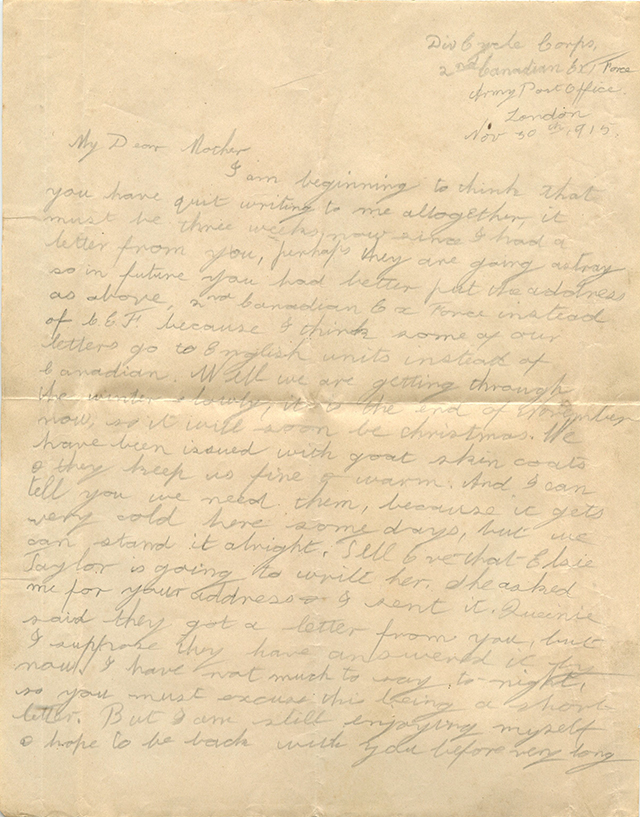 Div Cycle Corps,
2nd Canadian Ex Force
Army Post Office.
London
Nov 30th, 1915.
My Dear Mother
I am beginning to think that
you have quit writing to me altogether, it
must be three weeks now since I had a
letter from you, perhaps they are going astray
so in future you had better put the address
as above, 2nd Canadian Ex Force instead
of C.E.F. because I think some of our
letters go to English units instead of
Canadian. Well we are getting through
the winter slowly, it is the end of November
now, so it will soon be christmas. We
have been issued with goat skin coats
& they keep us fine & warm. And I can
tell you we need them, because it gets
very cold here some days, but we
can stand it alright. Tell Eve that Elsie
Taylor is going to write her. She asked
me for your address & I sent it. Queenie
said they got a letter from you, but
I suppose they have answered it by
now. I have not much to say, to-night,
so you must excuse this being a short
letter. But I am still enjoying myself
& hope to be back with you before very long